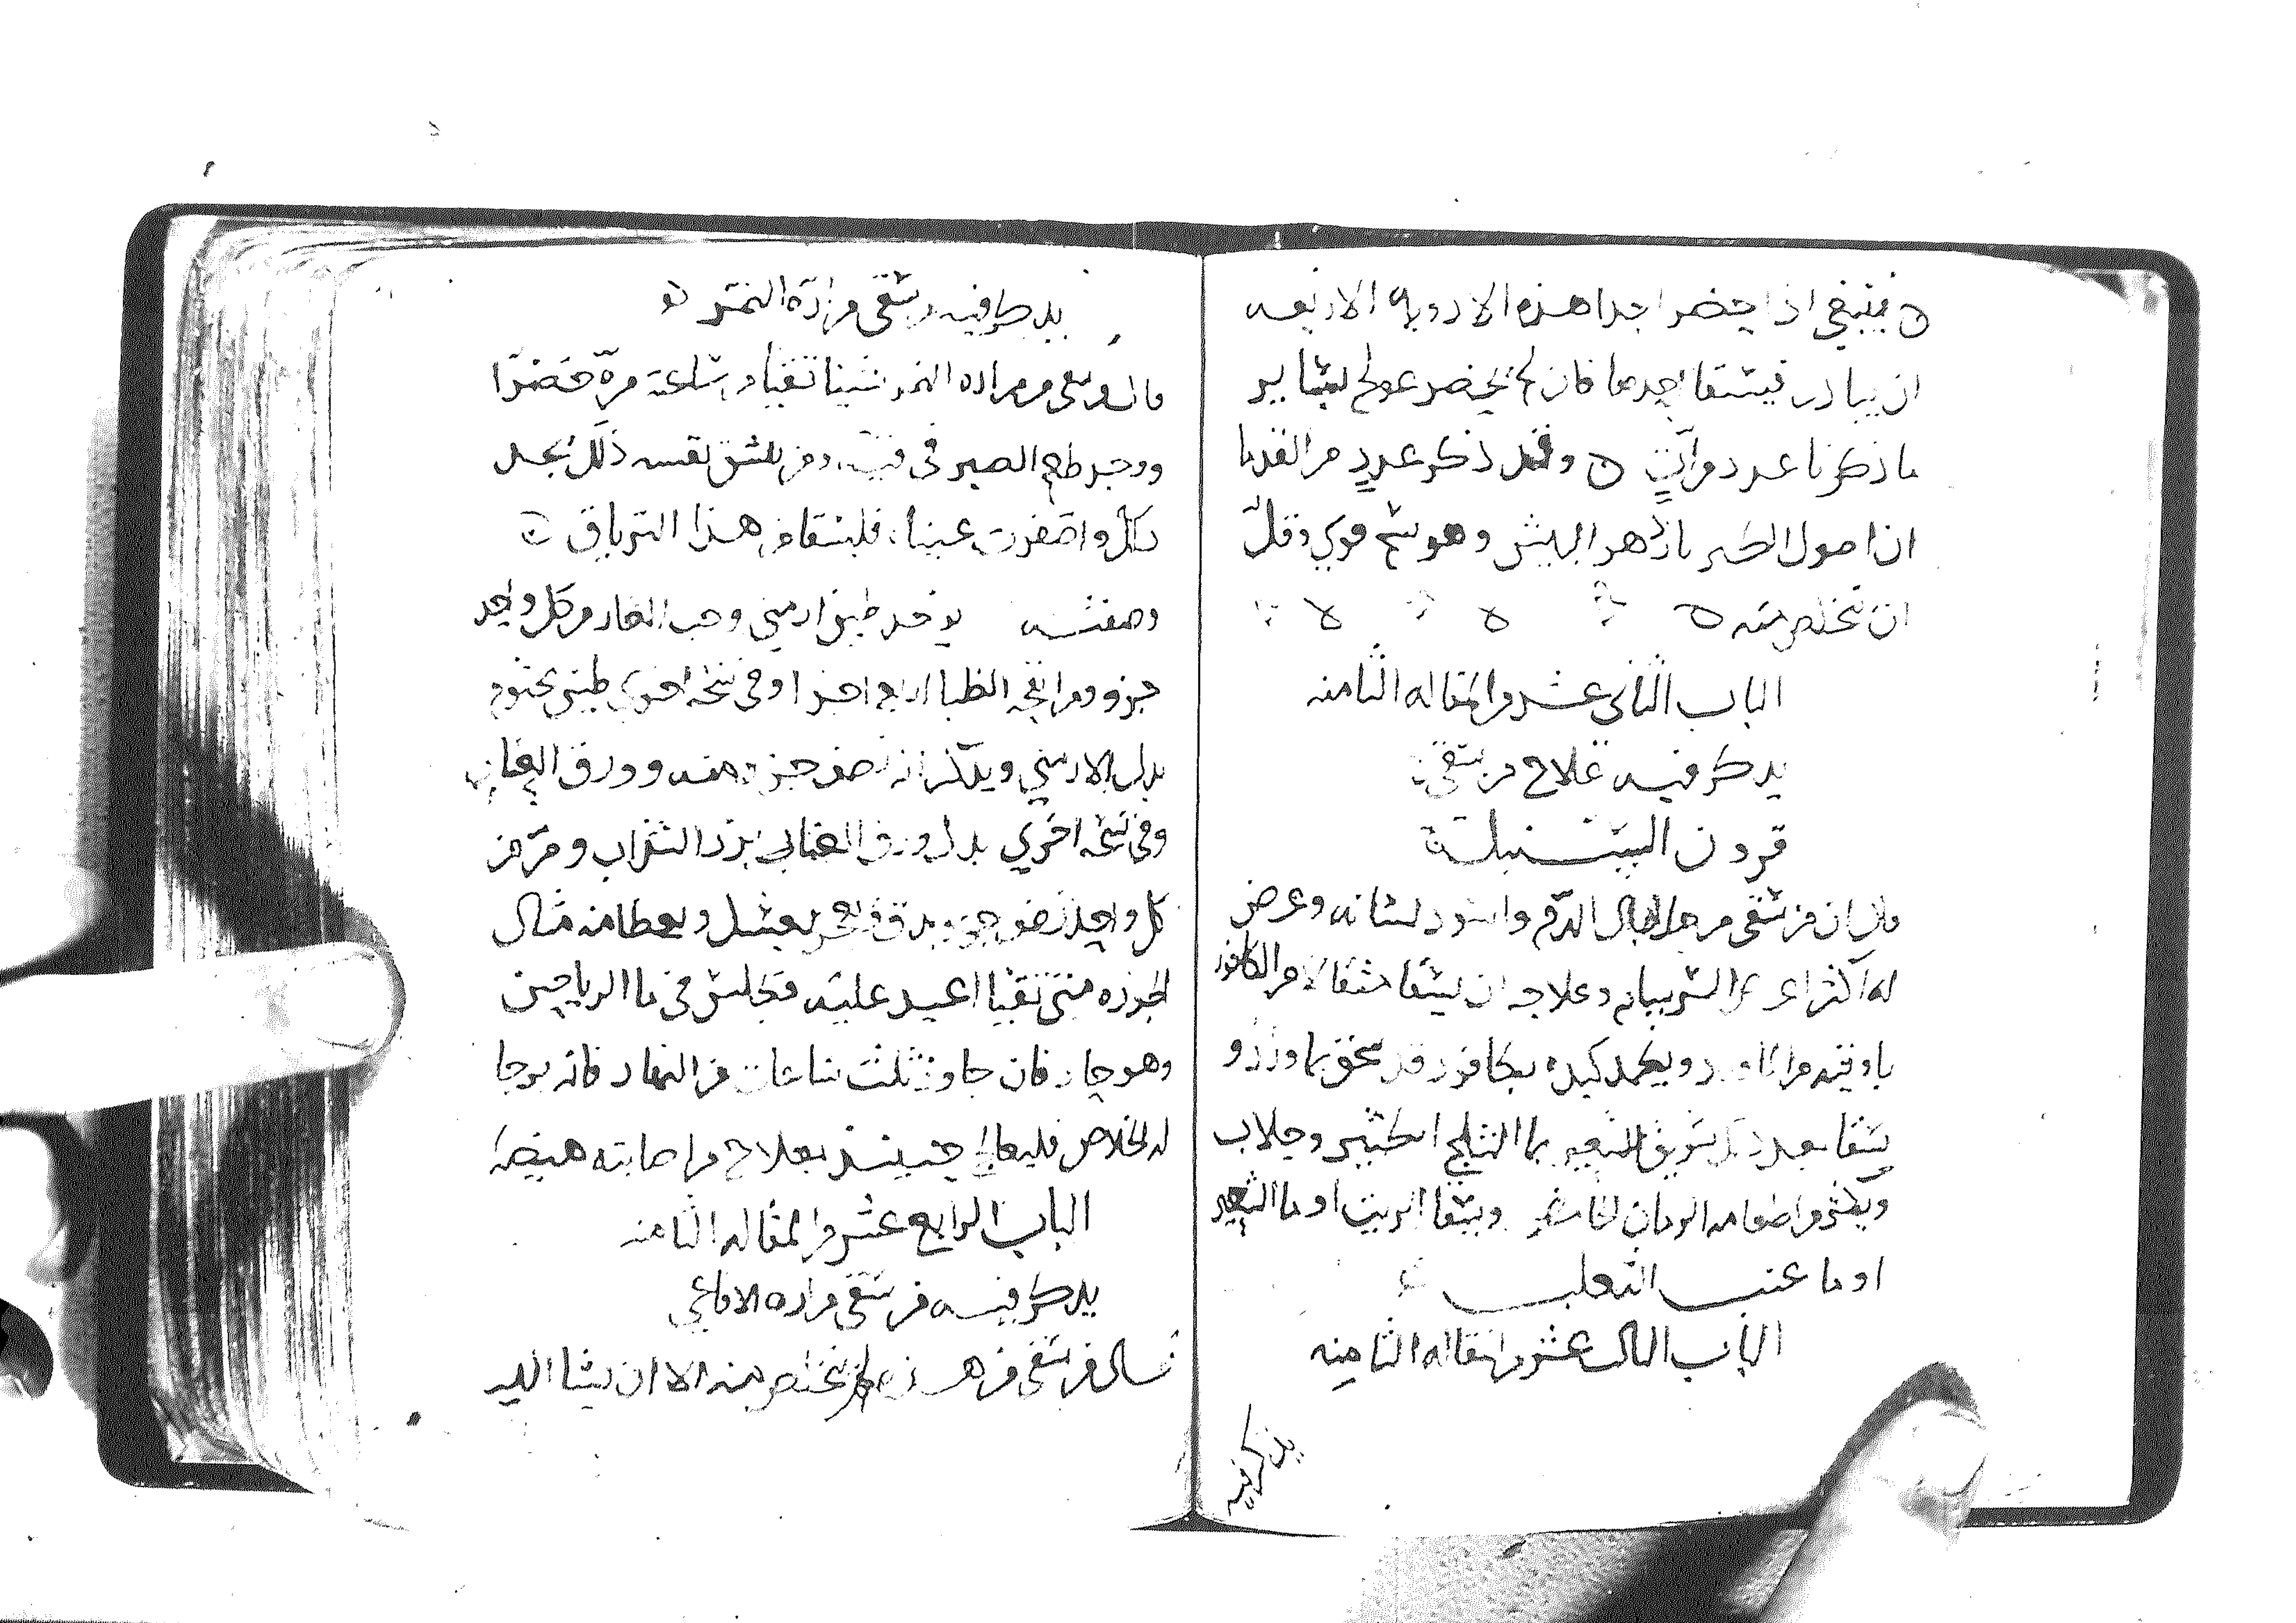 فينبغي اذا حضر احدا هذه الادويه الاربعه
ان يبادر فيسقا احدها فان لم يحضر عولج بساير
ما ذكرنا عدد مرات وقد ذكر عدد من القدما
ان اصول الكبر بازهر البيش وهو سم قوي وقل
ان تخلص منه
الباب الثاني عشر من المقاله الثامنه
يدكر فيه علاج من سقي
قرون السنبلة
قال ان من سقي من هذا بال الدم واسود لسانه وعرض
له اكثر اعراض السرسام وعلاجه ان يسقا مثقالا من الكافور
باوقيه من ما الورد ويكمد كبده بكافور قد سحق بماورد و
يسقا بعد ذلك سويق الشعير بما الثلج الكثير وجلاب
ويكثر من اطعامه الرمان الحامض ويسقا الزيت او ما الشعير
او ما عنب الثعلب
الباب الثالث عشر من المقاله الثامنه
يذكر فيه
يدكر فيه من سقي مرارة النمر
قال من سقي من مراره النمر شيئا تقيا من ساعته مره خضرا
ووجد طعم الصبر في فيه ومن تنشق نفسه ذلك يجد
ذلك واصفرت عيناه فليسقا من هذا الترياق
وصفته يوخد طين ارمني وحب الغار من كل واحد
جزو ومن انفحه الظبا اربع اجزا وفي نسخه اخري طين مختوم
بدل الارمني ويذكر انه نصف جزو منه وورق الغار
وفي نسخه اخري بدل ورق الغار بزر السذاب ومر من
كل واحد نصف جزو يدق ويعجن بعسل ويعطا منه مثال
الجوزه متي تقيا اعيد عليه فيجلس في ما الرياحين
وهو حار فان جاوز ثلث ساعات من النهار فانه يرجا
له الخلاص فليعالج حينيذ بعلاج من اصابته هيضه
الباب الرابع عشر من المقاله الثامنه
يدكر فيه من سقي مراره الافاعي
قال من سقي من هذه لم يتخلص منه الا ان يشا الله